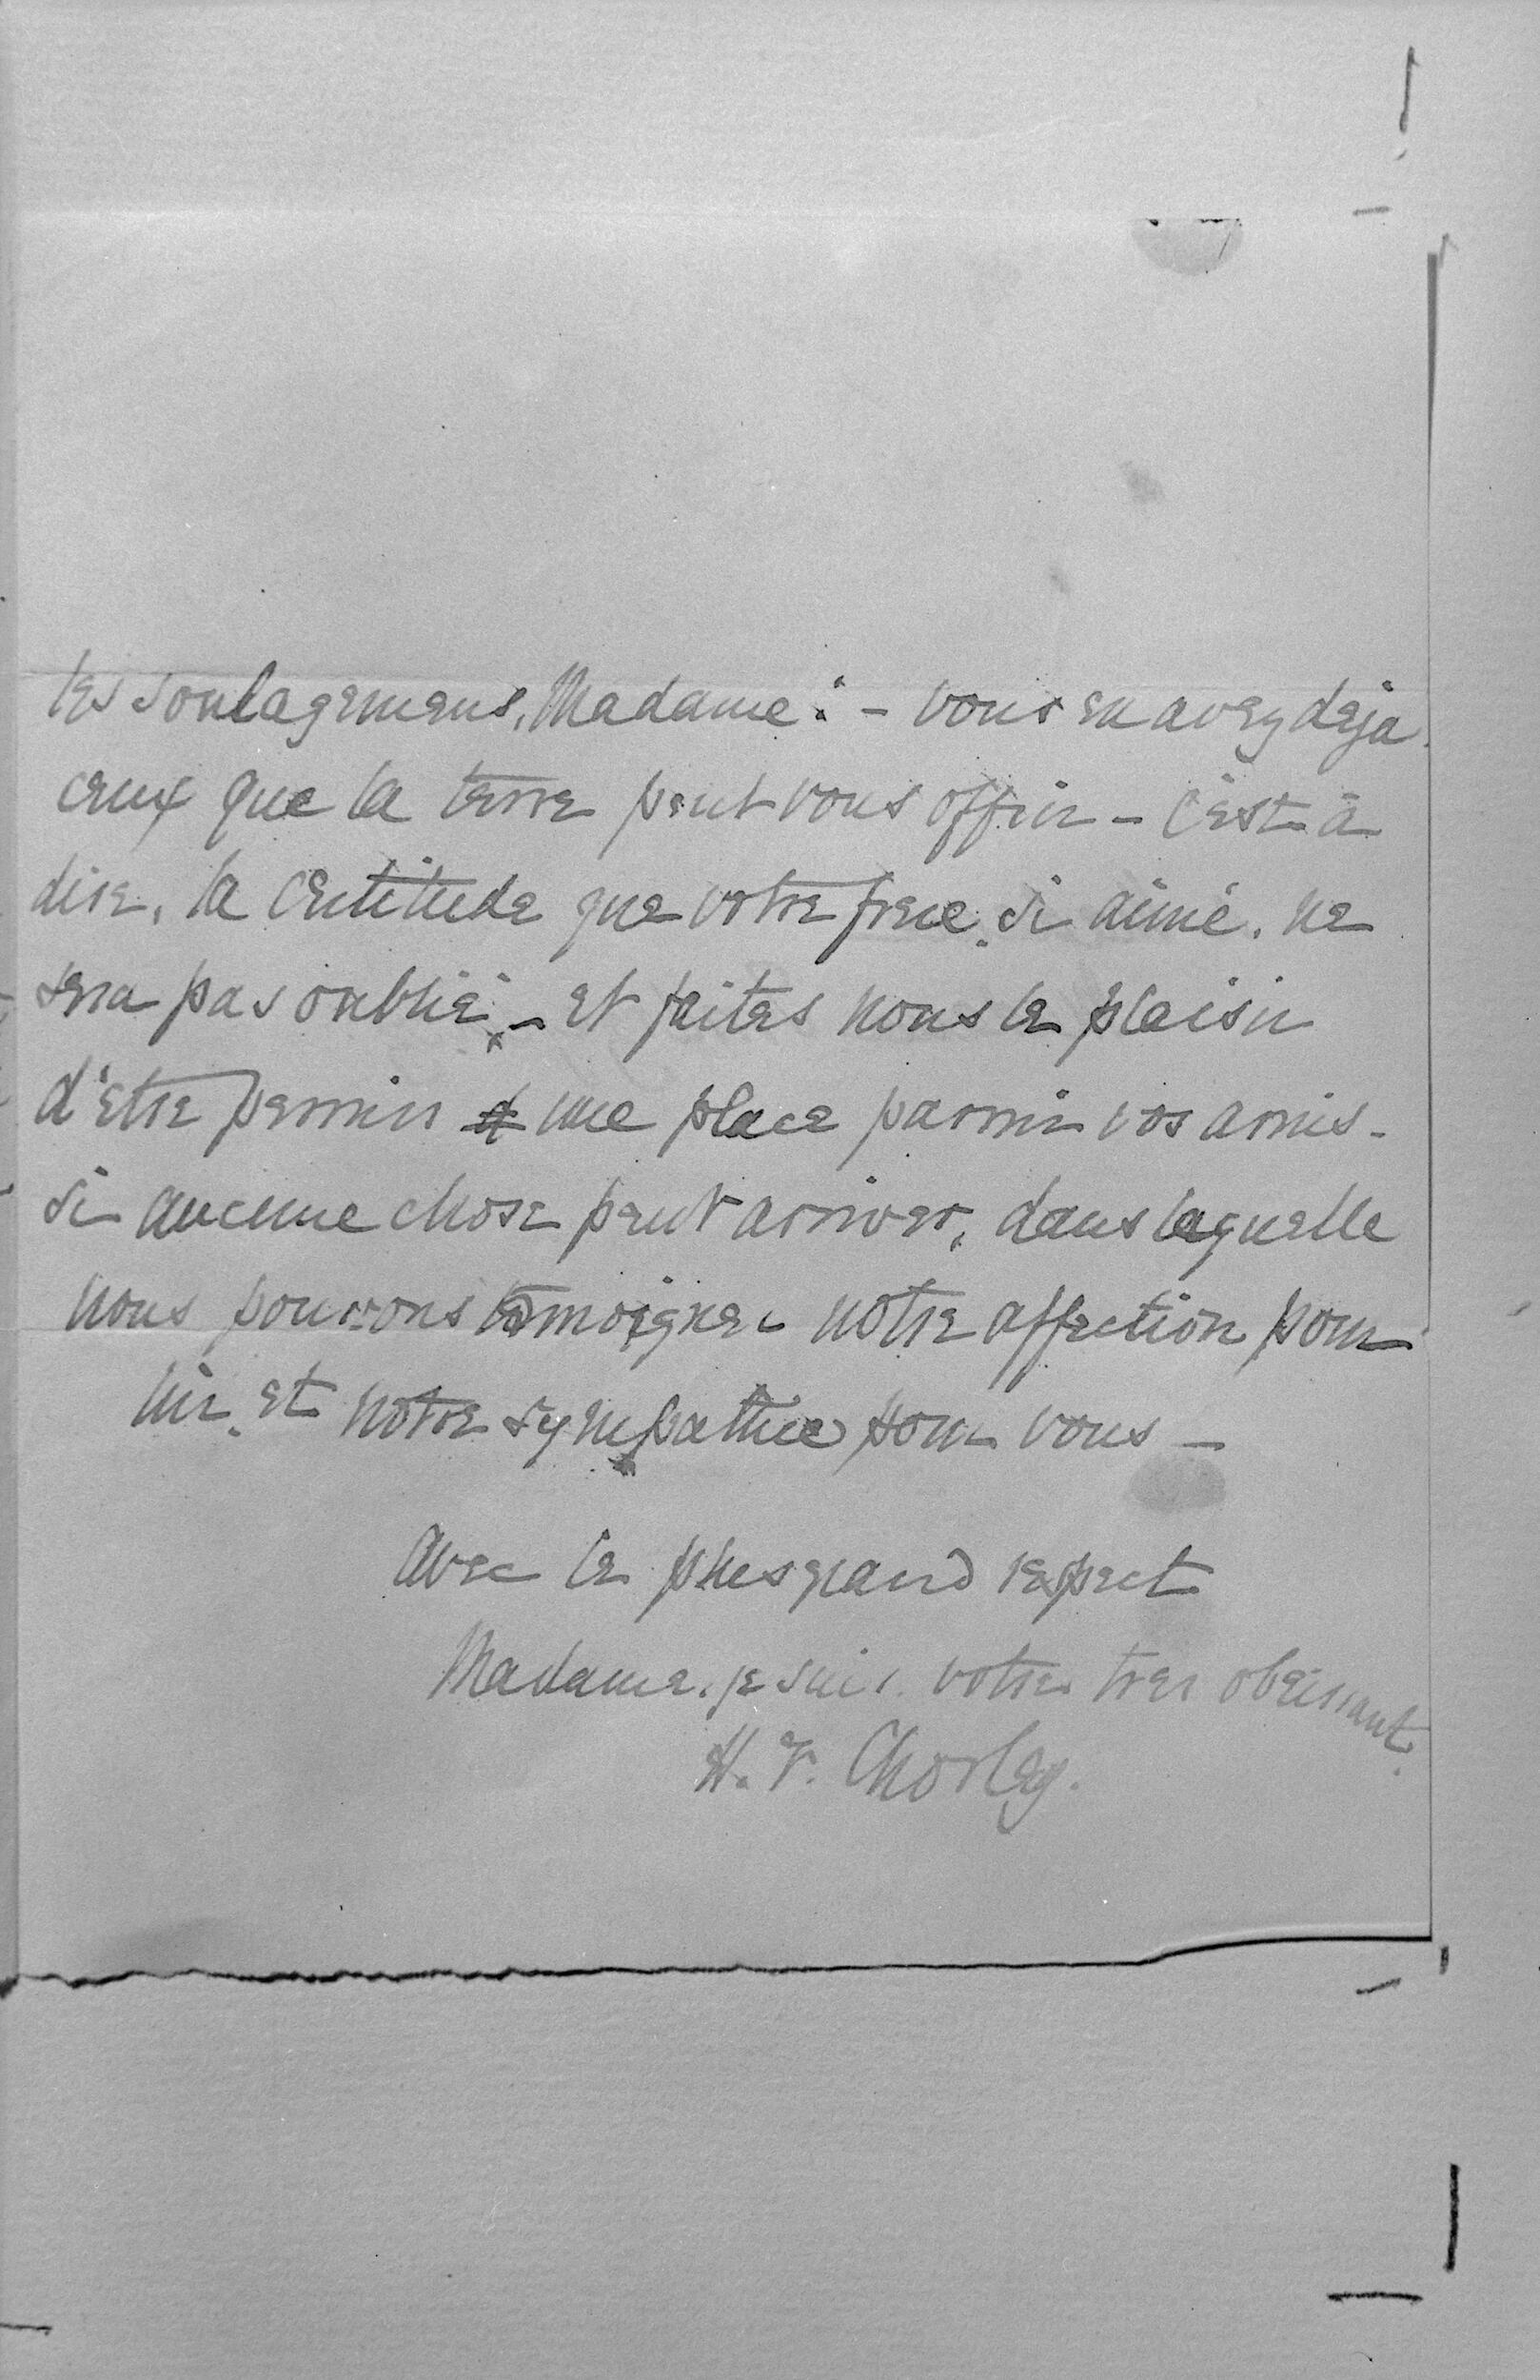 les soulagemens, Madame: - vous en avez deja
ceux que la terre peut vous offrir - c'est à
dire, la certitude que votre frere, si aimé, ne
sera pas oublié - et faites nous le plaisir
d'etre permis une place parmi vos amis -
si aucune chose peut arriver, dans laquelle
nous pouvons temoigner notre affection pour
lui, et notre sympathie pour vous -
avec le plus grand respect
Madame, je suis, votre tres obeissant.
H. F. Chorley.